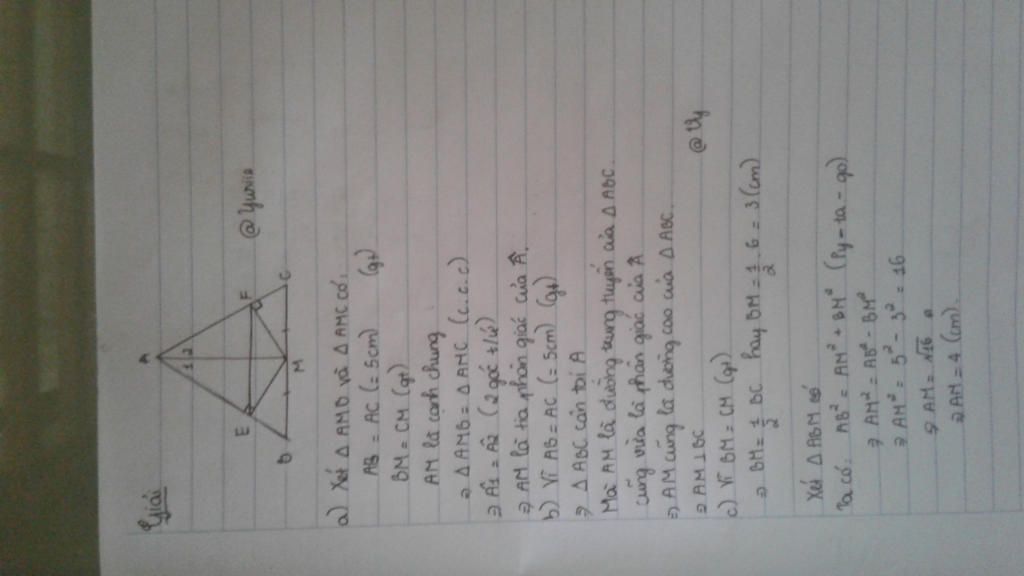 Giải
A
1 2
E
F
B
M
C
@Yuriie
a) Xét Δ AMB và Δ AMC có:
AB = AC (= 5cm) (gt)
BM = CM (gt)
AM là cạnh chung
⇒ Δ AMB = Δ AMC (c.c.c)
⇒ Â1 = Â2 (2 góc t/ứ)
⇒ AM là tia phân giác của Â.
b) Vì AB = AC (= 5cm) (gt)
⇒ Δ ABC cân tại A
Mà AM là đường trung tuyến của Δ ABC.
cũng vừa là phân giác của Â
⇒ AM cũng là đường cao của Δ ABC.
⇒ AM ⊥ BC
@Vy
c) Vì BM = CM (gt)
⇒ BM = 1/2 BC hay BM = 1/2 . 6 = 3 (cm)
Xét Δ ABM có
Ta có: AB² = AM² + BM² (Py - ta - go)
⇒ AM² = AB² - BM²
⇒ AM² = 5² - 3² = 16
⇒ AM = √16
⇒ AM = 4 (cm).